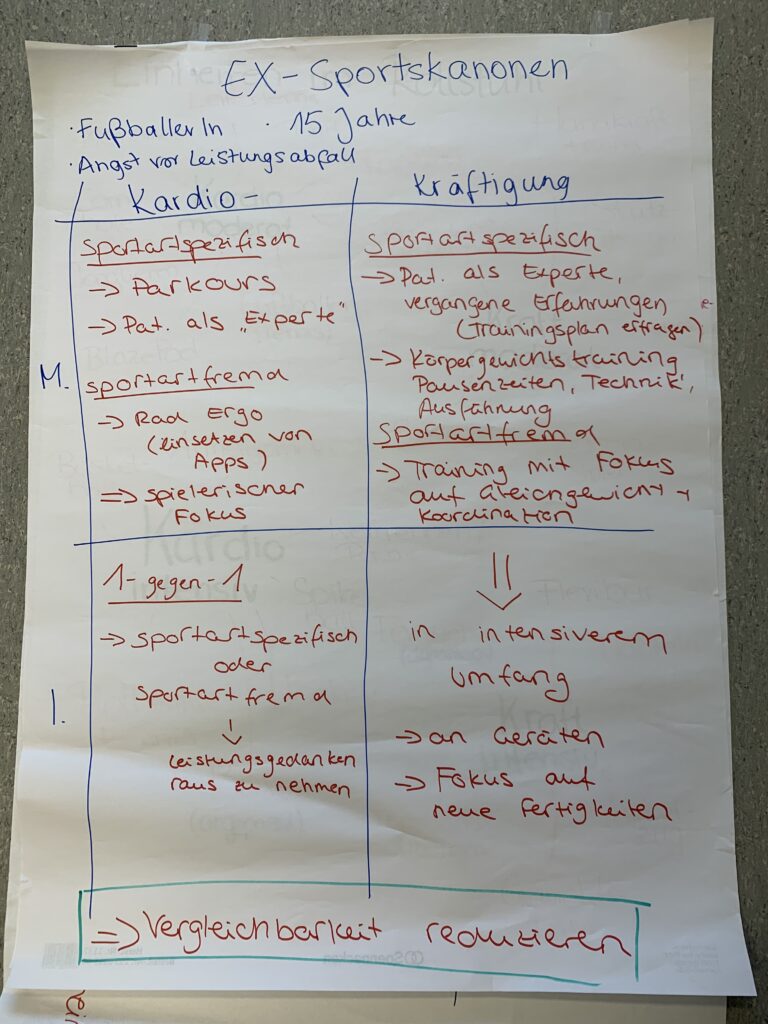 EX-Sportskanonen
· FußballerIn · 15 Jahre
· Angst vor Leistungsabfall
Kardio-
Kräftigung
M.
sportartspezifisch
→ Parkours
→ Pat. als „Experte"
sportartfremd
→ Rad Ergo
(einsetzen von
Apps)
⇒ spielerischer
Fokus
sportartspezifisch
→ Pat. als Experte,
vergangene Erfahrungen
(Trainingsplan erfragen)
→ Körpergewichtstraining,
Pausenzeiten, Technik,
Ausführung
sportartfremd
→ Training mit Fokus
auf Gleichgewicht +
Koordination
I.
1-gegen-1
→ sportartspezifisch
oder
sportartfremd
↓
Leistungsgedanken
raus zu nehmen
⇓
in intensiverem
Umfang
→ an Geräten
→ Fokus auf
neue Fertigkeiten
⇒ Vergleichbarkeit reduzieren